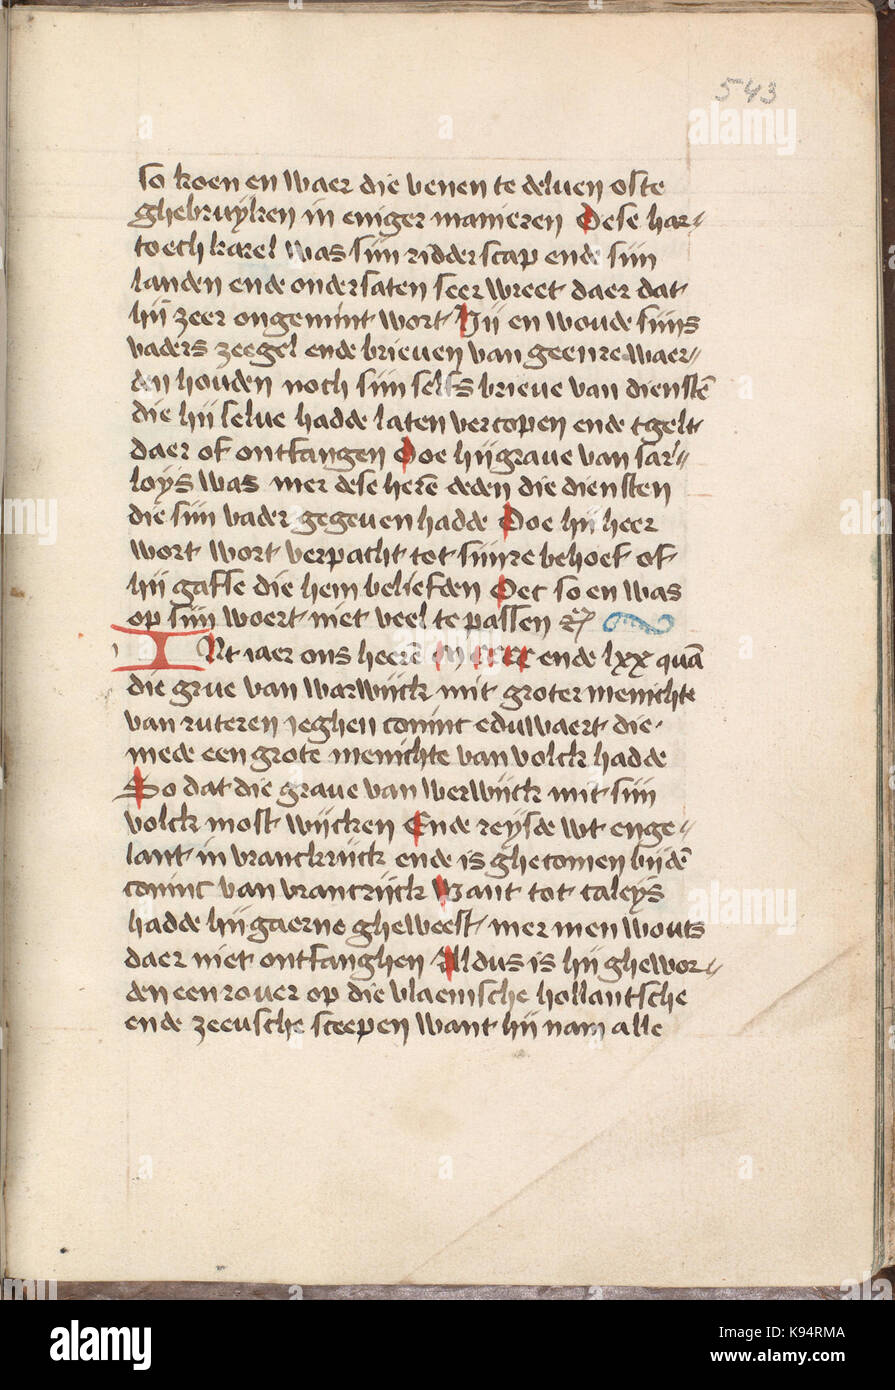 543
so koen en waer die venen te deluen ofte
ghebruijken in eniger manieren Dese har-
toech karel was sijn ridderscap ende sijn
landen ende ondersaten seer wreet daer dat
hij zeer ongemint wort Hij en woude sijns
vaders zeegel ende brieuen van geenre waer-
den houden noch sijn selfs brieue van dienstē
die hij selue hadde laten vercopen ende tgelt
daer of ontfangen Doe hij graue van sar-
loys was mer dese herē deden die diensten
die sijn vader gegeuen hadde Doe hij heer
wort wort verpacht tot sijnre behoef of
hij gaffe die hem beliefden Oec so en was
op sijn woert niet veel te passen
INt iaer ons heerē M CCCC ende lxx quā
die grue van warwijck mit groter menichte
van ruteren jeghen coninc eduwaert die
mede een grote menichte van volck hadde
So dat die graue van werwijck mit sijn
volck most wijcken Ende reysde wt enge-
lant in vranckrijck ende is ghecomen bij dē
coninc van vrancrijck Want tot caleys
hadde hij gaerne gheweest mer men wouts
daer niet ontfanghen Aldus is hij ghewor-
den een rouer op die vlaemsche hollantsche
ende zeeusche sceepen want hij nam alle
alamy
Image ID: K94RMA
www.alamy.com